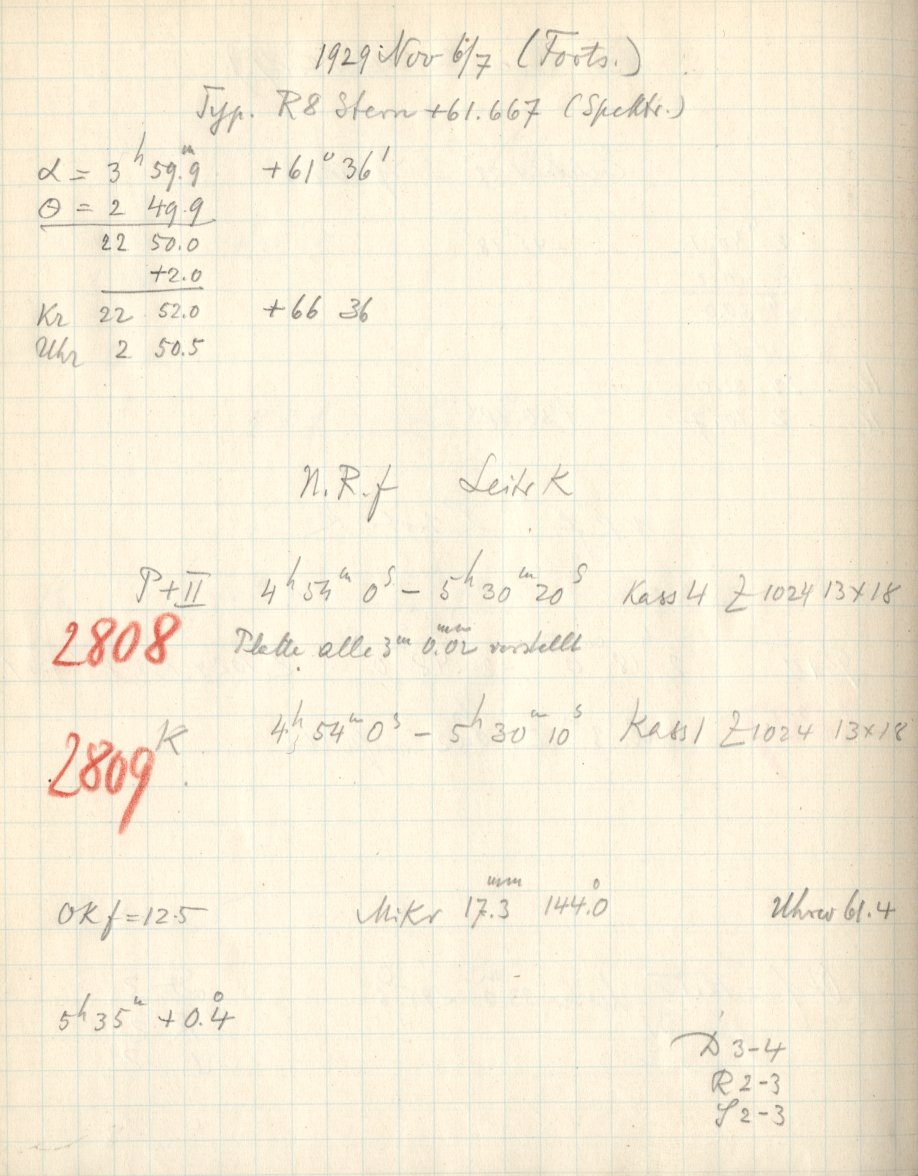 1929 Nov 6/7 (Forts.)
Typ. R8 Stern +61.667 (Spektr.)
α = 3ʰ 59.ᵐ9 +61° 36'
Θ = 2 49.9
22 50.0
+2.0
Kr 22 52.0 +66 36
Uhr 2 50.5
N.R.f Leitr K
P+II 4ʰ 54ᵐ 0ˢ – 5ʰ 30ᵐ 20ˢ Kass 4 Z 1024 13×18
2808 Platte alle 3ᵐ 0.02ᵐᵐ verstellt
2809 K 4ʰ 54ᵐ 0ˢ – 5ʰ 30ᵐ 10ˢ Kass 1 Z 1024 13×18
OK f = 12.5 Mikr 17.3ᵐᵐ 144.°0 Uhrw 61.4
5ʰ 35ᵐ +0.°4
D 3-4
R 2-3
S 2-3